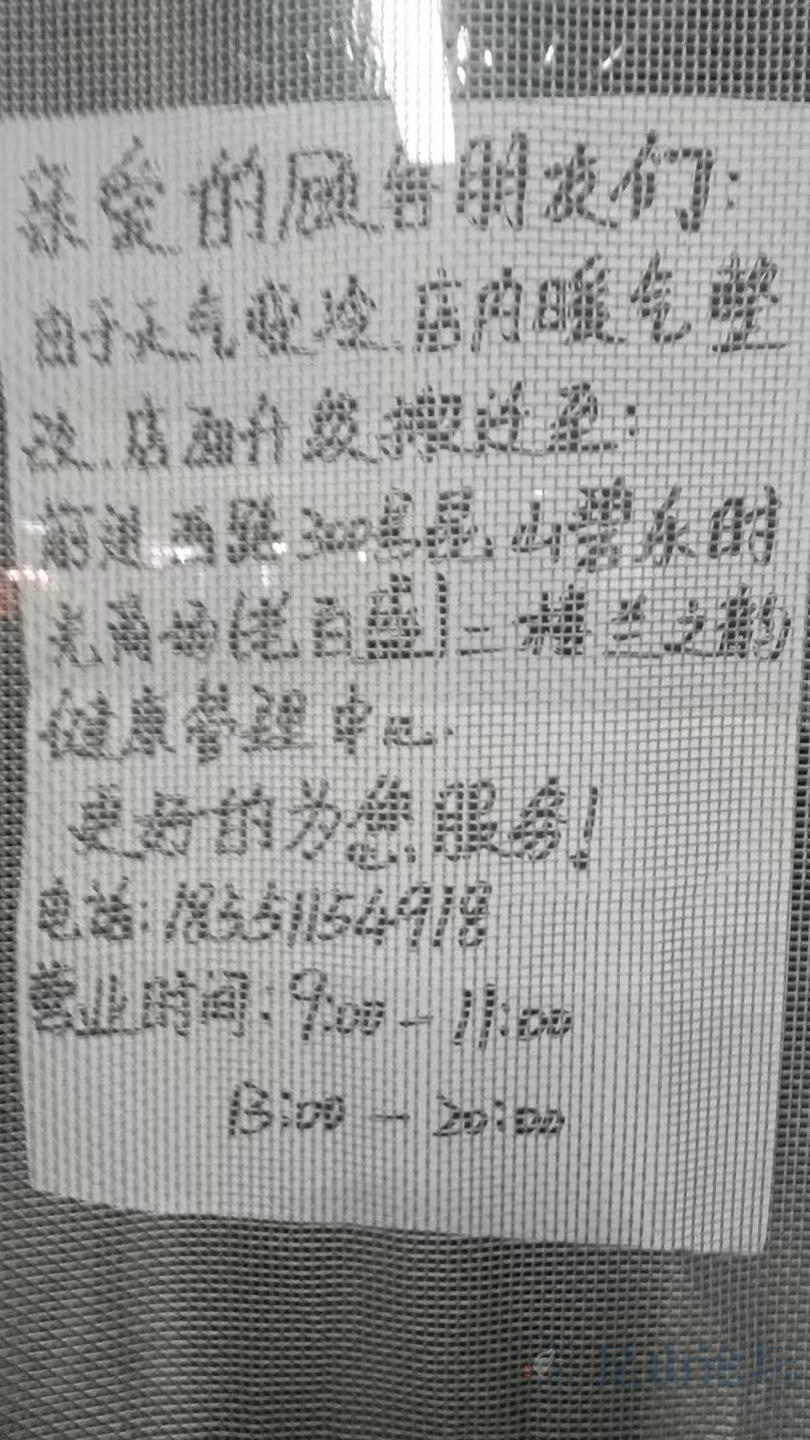 亲爱的顾客朋友们:
由于天气变冷.店内暖气整
改.店面升级搬迁至:
前进西路300号昆山碧乐时
光广场(老百盛)二楼兰之韵
健康管理中心.
更好的为您服务!
电话:18551154918
营业时间:9:00-11:00
13:00-20:00
昆山论坛